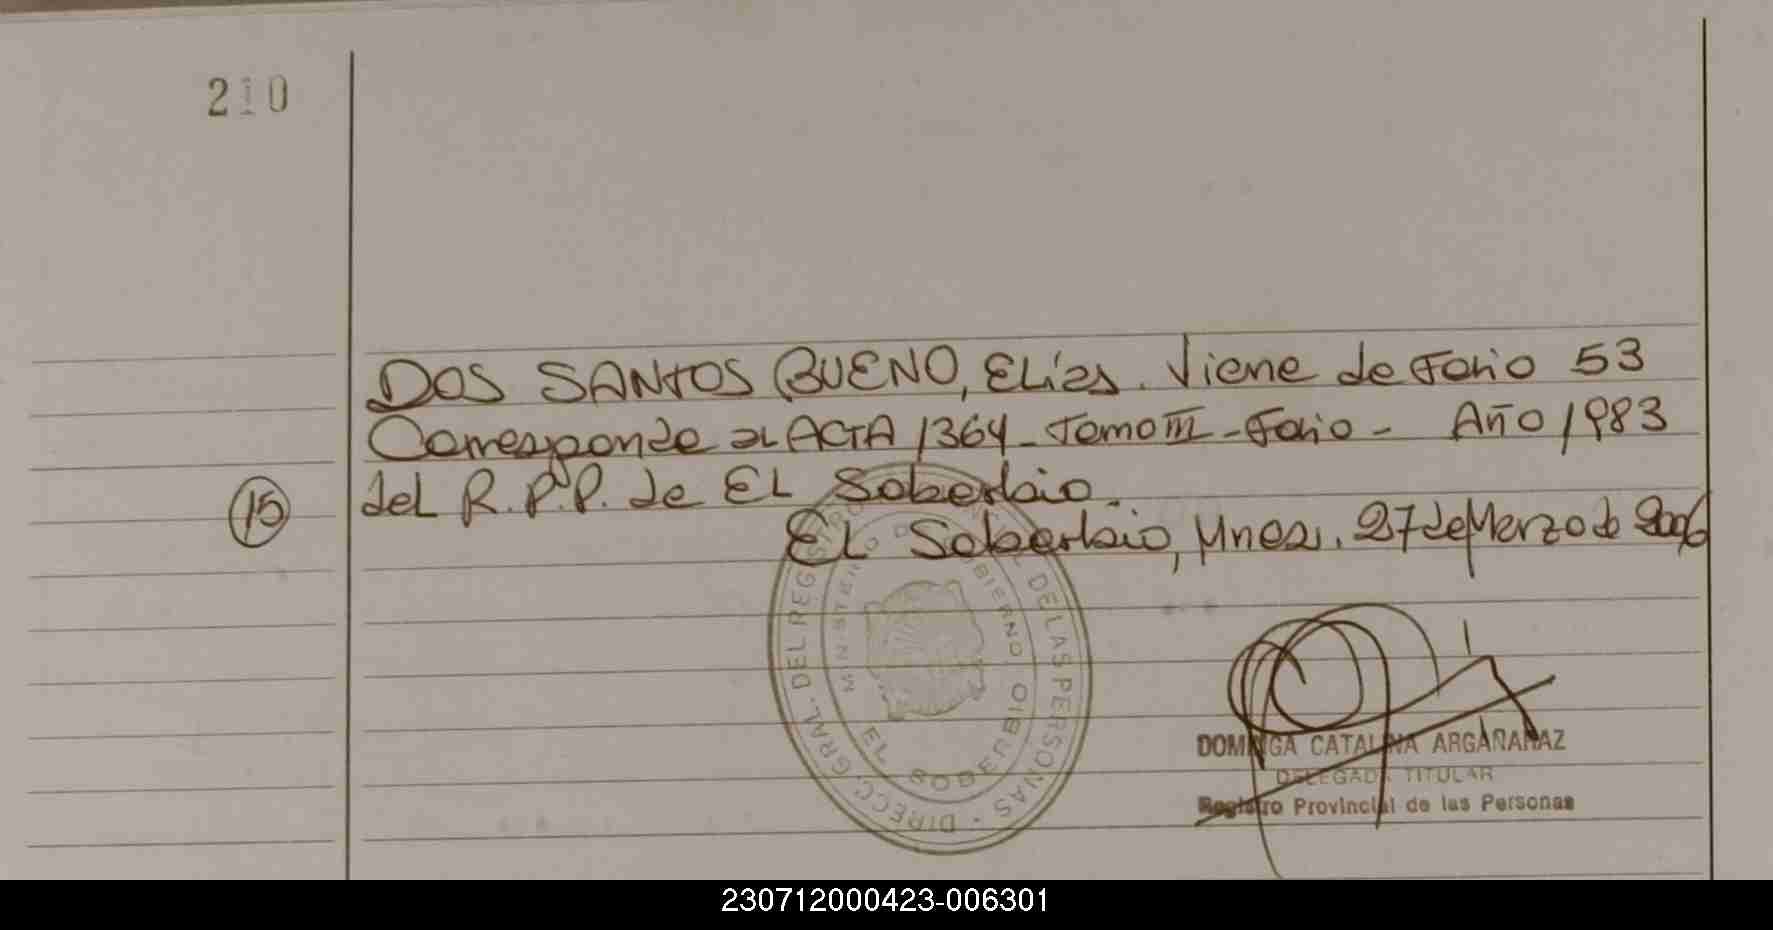 210
DOS SANTOS BUENO, Elías. Viene de Folio 53
Corresponde al ACTA 1364 - Tomo III - Folio - Año 1983
15 del R.P.P. de El Soberbio.
El Soberbio, Mnes, 27 de Marzo de 2006
DIRECC. GRAL. DEL REGISTRO DE LAS PERSONAS
MINISTERIO DE GOBIERNO
EL SOBERBIO
DOMINGA CATALINA ARGAÑARAZ
DELEGADA TITULAR
Registro Provincial de las Personas
230712000423-006301